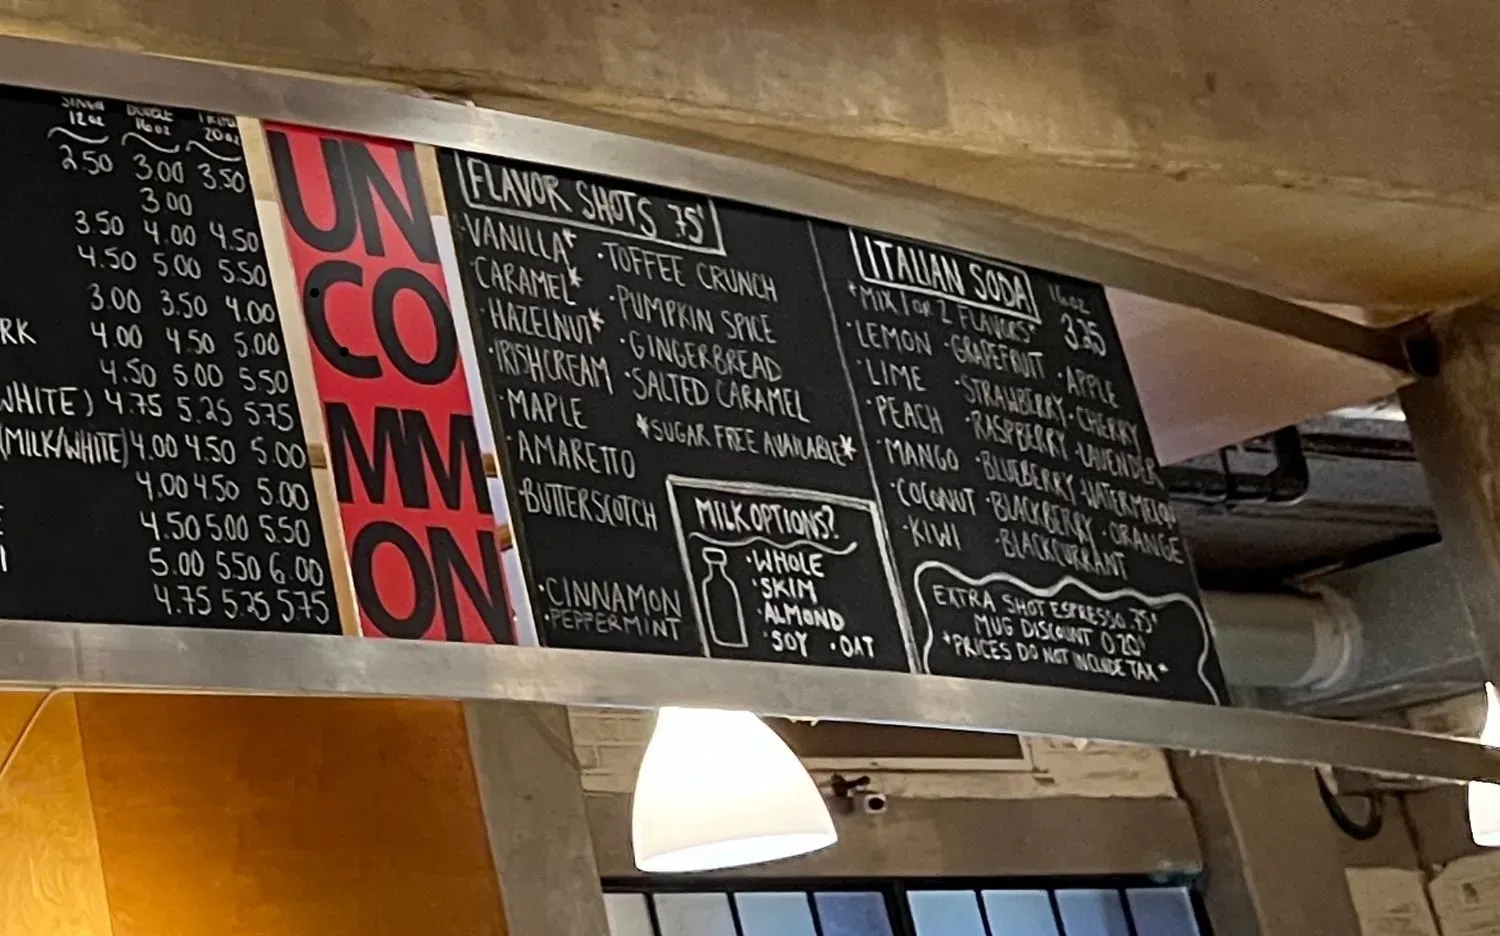 SINGLE DOUBLE TRIPLE
12oz 16oz 20oz
2.50 3.00 3.50
3.00
3.50 4.00 4.50
4.50 5.00 5.50
3.00 3.50 4.00
RK 4.00 4.50 5.00
4.50 5.00 5.50
WHITE) 4.75 5.25 5.75
(MILK/WHITE) 4.00 4.50 5.00
4.00 4.50 5.00
4.50 5.00 5.50
5.00 5.50 6.00
4.75 5.25 5.75
UN
CO
MM
ON
FLAVOR SHOTS .75¢
·VANILLA* ·TOFFEE CRUNCH
·CARAMEL* ·PUMPKIN SPICE
·HAZELNUT* ·GINGERBREAD
·IRISHCREAM ·SALTED CARAMEL
·MAPLE *SUGAR FREE AVAILABLE*
·AMARETTO
·BUTTERSCOTCH
·CINNAMON
·PEPPERMINT
MILK OPTIONS?
·WHOLE
·SKIM
·ALMOND
·SOY ·OAT
ITALIAN SODA 16oz
*MIX 1 or 2 FLAVORS* 3.25
·LEMON ·GRAPEFRUIT ·APPLE
·LIME ·STRAWBERRY ·CHERRY
·PEACH ·RASPBERRY ·LAVENDER
·MANGO ·BLUEBERRY ·WATERMELON
·COCONUT ·BLACKBERRY ·ORANGE
·KIWI ·BLACKCURRANT
EXTRA SHOT ESPRESSO .75¢
MUG DISCOUNT 0.20¢
*PRICES DO NOT INCLUDE TAX*